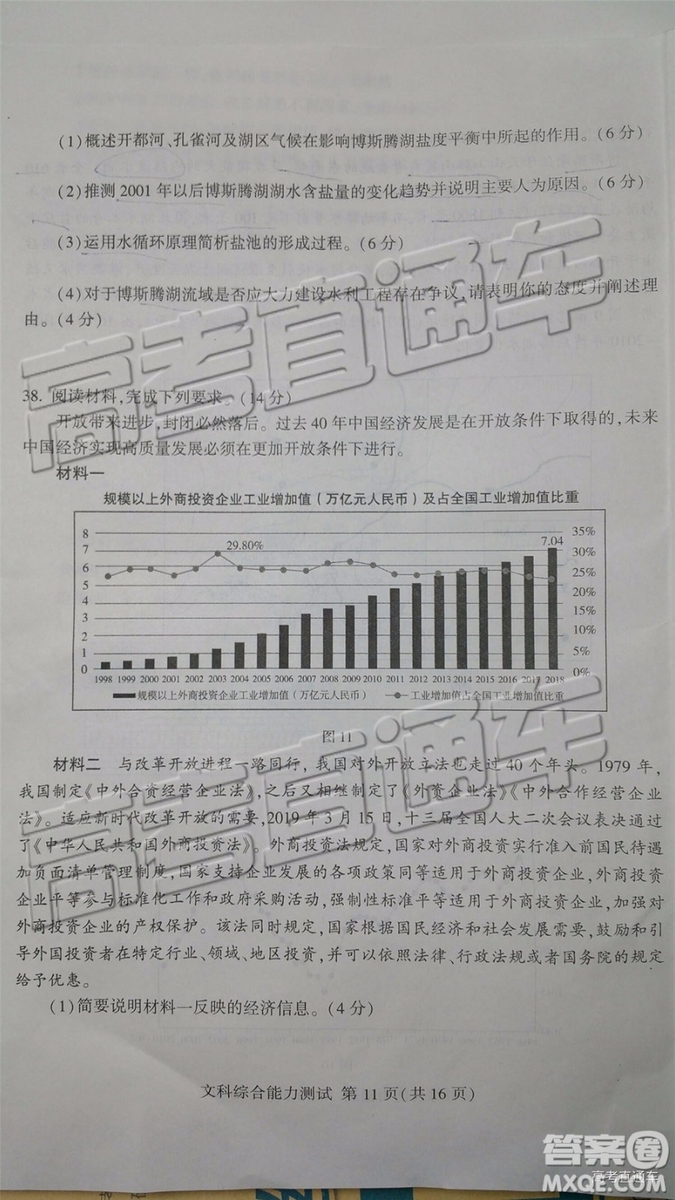 (1)概述开都河、孔雀河及湖区气候在影响博斯腾湖盐度平衡中所起的作用。(6分)
(2)推测2001年以后博斯腾湖湖水含盐量的变化趋势并说明主要人为原因。(6分)
(3)运用水循环原理简析盐池的形成过程。(6分)
(4)对于博斯腾湖流域是否应大力建设水利工程存在争议,请表明你的态度并阐述理
由。(4分)
38. 阅读材料,完成下列要求。(14分)
开放带来进步,封闭必然落后。过去40年中国经济发展是在开放条件下取得的,未来
中国经济实现高质量发展必须在更加开放条件下进行。
材料一
规模以上外商投资企业工业增加值(万亿元人民币)及占全国工业增加值比重
8 35%
7 29.80% 7.04 30%
6 25%
5 20%
4 15%
3 10%
2 5%
1 0%
0
1998 1999 2000 2001 2002 2003 2004 2005 2006 2007 2008 2009 2010 2011 2012 2013 2014 2015 2016 2017 2018
规模以上外商投资企业工业增加值(万亿元人民币) 工业增加值占全国工业增加值比重
图11
材料二 与改革开放进程一路同行,我国对外开放立法也走过40个年头。1979年,
我国制定《中外合资经营企业法》,之后又相继制定了《外资企业法》《中外合作经营企业
法》。适应新时代改革开放的需要,2019年3月15日,十三届全国人大二次会议表决通过
了《中华人民共和国外商投资法》。外商投资法规定,国家对外商投资实行准入前国民待遇
加负面清单管理制度,国家支持企业发展的各项政策同等适用于外商投资企业,外商投资
企业平等参与标准化工作和政府采购活动,强制性标准平等适用于外商投资企业,加强对
外商投资企业的产权保护。该法同时规定,国家根据国民经济和社会发展需要,鼓励和引
导外国投资者在特定行业、领域、地区投资,并可以依照法律、行政法规或者国务院的规定
给予优惠。
(1)简要说明材料一反映的经济信息。(4分)
文科综合能力测试 第11页(共16页)
高考直通车
高考直通车
答案圈
高考直通车
MXQE.COM